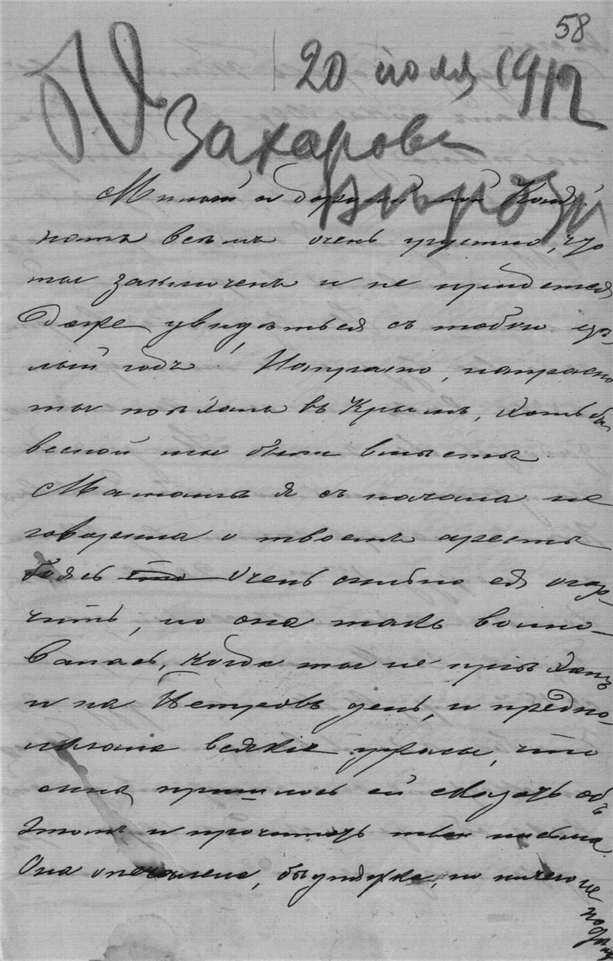 58
20 июля 1912
Захарова
Милый и дорогой мой
намъ всѣмъ очень грустно, что
ты заключенъ и не придется
даже увидѣться съ тобою цѣ-
лый годъ. Напрасно, напрасно
ты поѣхалъ въ Крымъ, хотя бы
весной мы были вмѣстѣ.
Мамашѣ я съ начала не
говорила о твоемъ арестѣ
боясь очень сильно ея огор-
чить, но она такъ волно-
валась, когда ты не пріѣхалъ
и на Петровъ день, и предпо-
лагала всякіе ужасы, что
мнѣ пришлось ей сказать объ
этомъ и прочитать письма.
Она опечалена, бѣдняжка, но ничего не